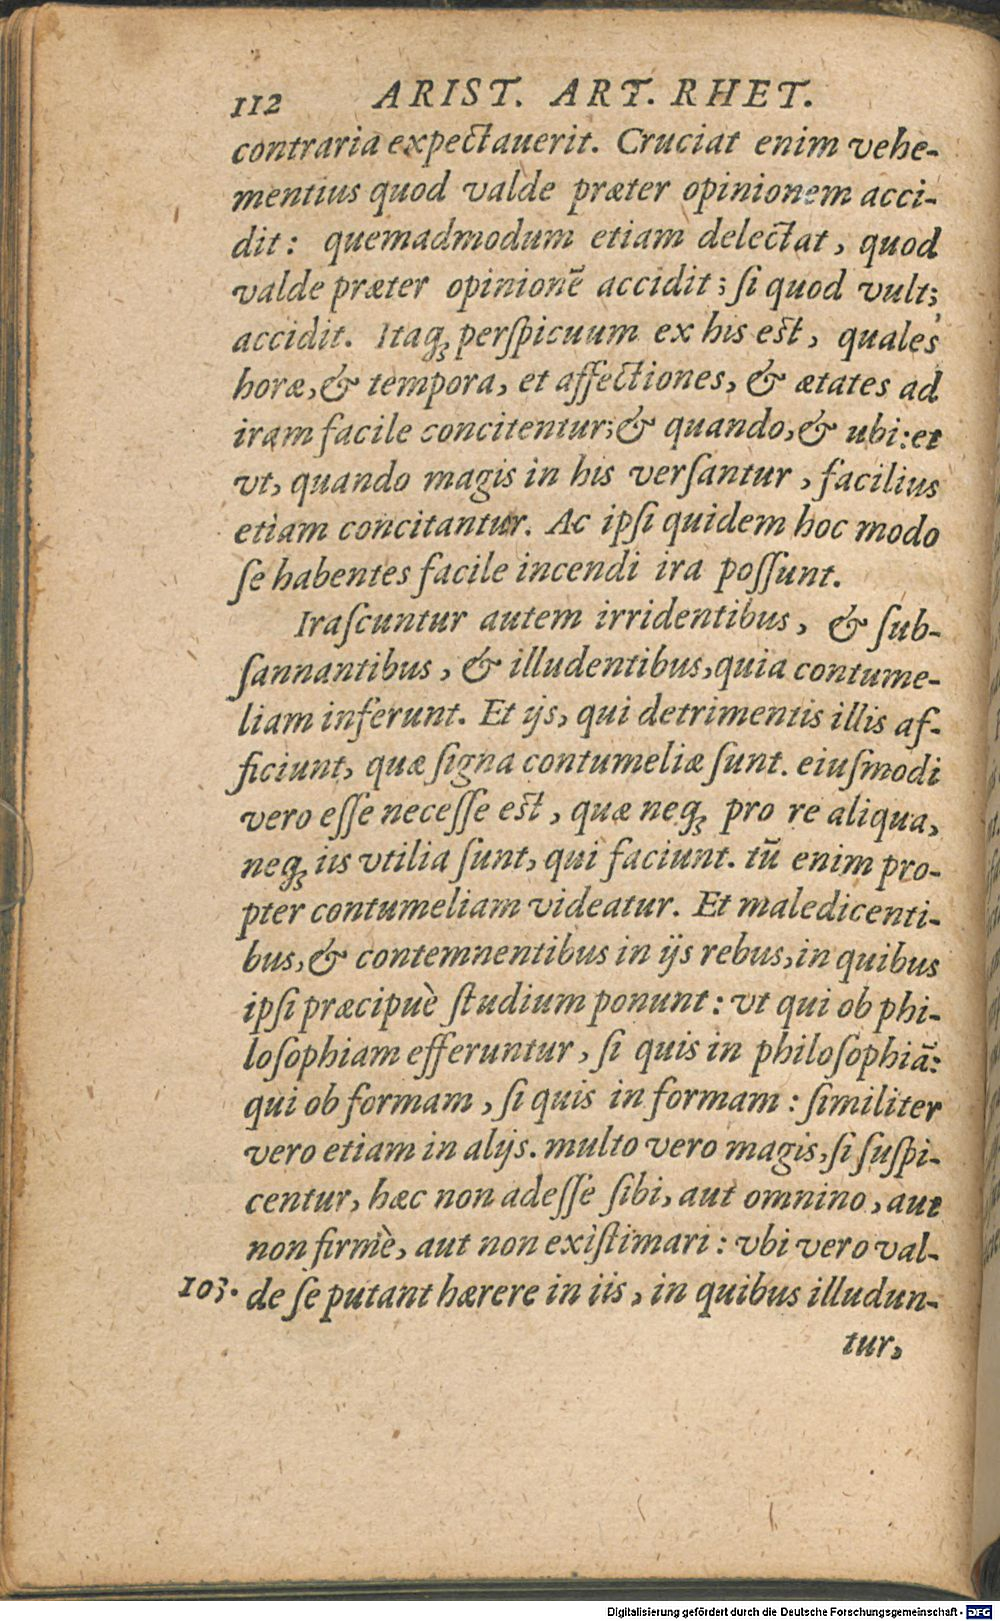 112 ARIST. ART. RHET.
contraria expectauerit. Cruciat enim vehe-
mentius quod valde præter opinionem acci-
dit: quemadmodum etiam delectat, quod
valde præter opinionē accidit; ſi quod vult;
accidit. Itaq; perſpicuum ex his est, quales
horæ, & tempora, et affectiones, & ætates ad
iram facile concitentur; & quando, & ubi: et
vt, quando magis in his verſantur, facilius
etiam concitantur. Ac ipſi quidem hoc modo
ſe habentes facile incendi ira poſſunt.
Iraſcuntur autem irridentibus, & ſub-
ſannantibus, & illudentibus, quia contume-
liam inferunt. Et ijs, qui detrimentis illis af-
ficiunt, quæ ſigna contumeliæ ſunt. eiuſmodi
vero eſſe neceſſe est, quæ neq; pro re aliqua,
neq; iis vtilia ſunt, qui faciunt. tū enim pro-
pter contumeliam videatur. Et maledicenti-
bus, & contemnentibus in ijs rebus, in quibus
ipſi præcipuè ſtudium ponunt: vt qui ob phi-
loſophiam efferuntur, ſi quis in philoſophiā:
qui ob formam, ſi quis in formam: ſimiliter
vero etiam in alijs. multo vero magis, ſi ſuſpi-
centur, hæc non adeſſe ſibi, aut omnino, aut
non firmè, aut non exiſtimari: vbi vero val-
103. de ſe putant hærere in iis, in quibus illudun-
tur,
Digitalisierung gefördert durch die Deutsche Forschungsgemeinschaft - DFG